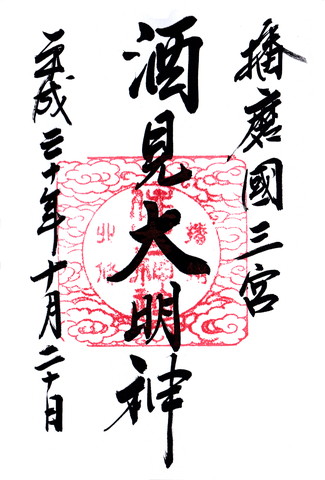 播磨國三宮
酒見大明神
平成二十年十月二十日